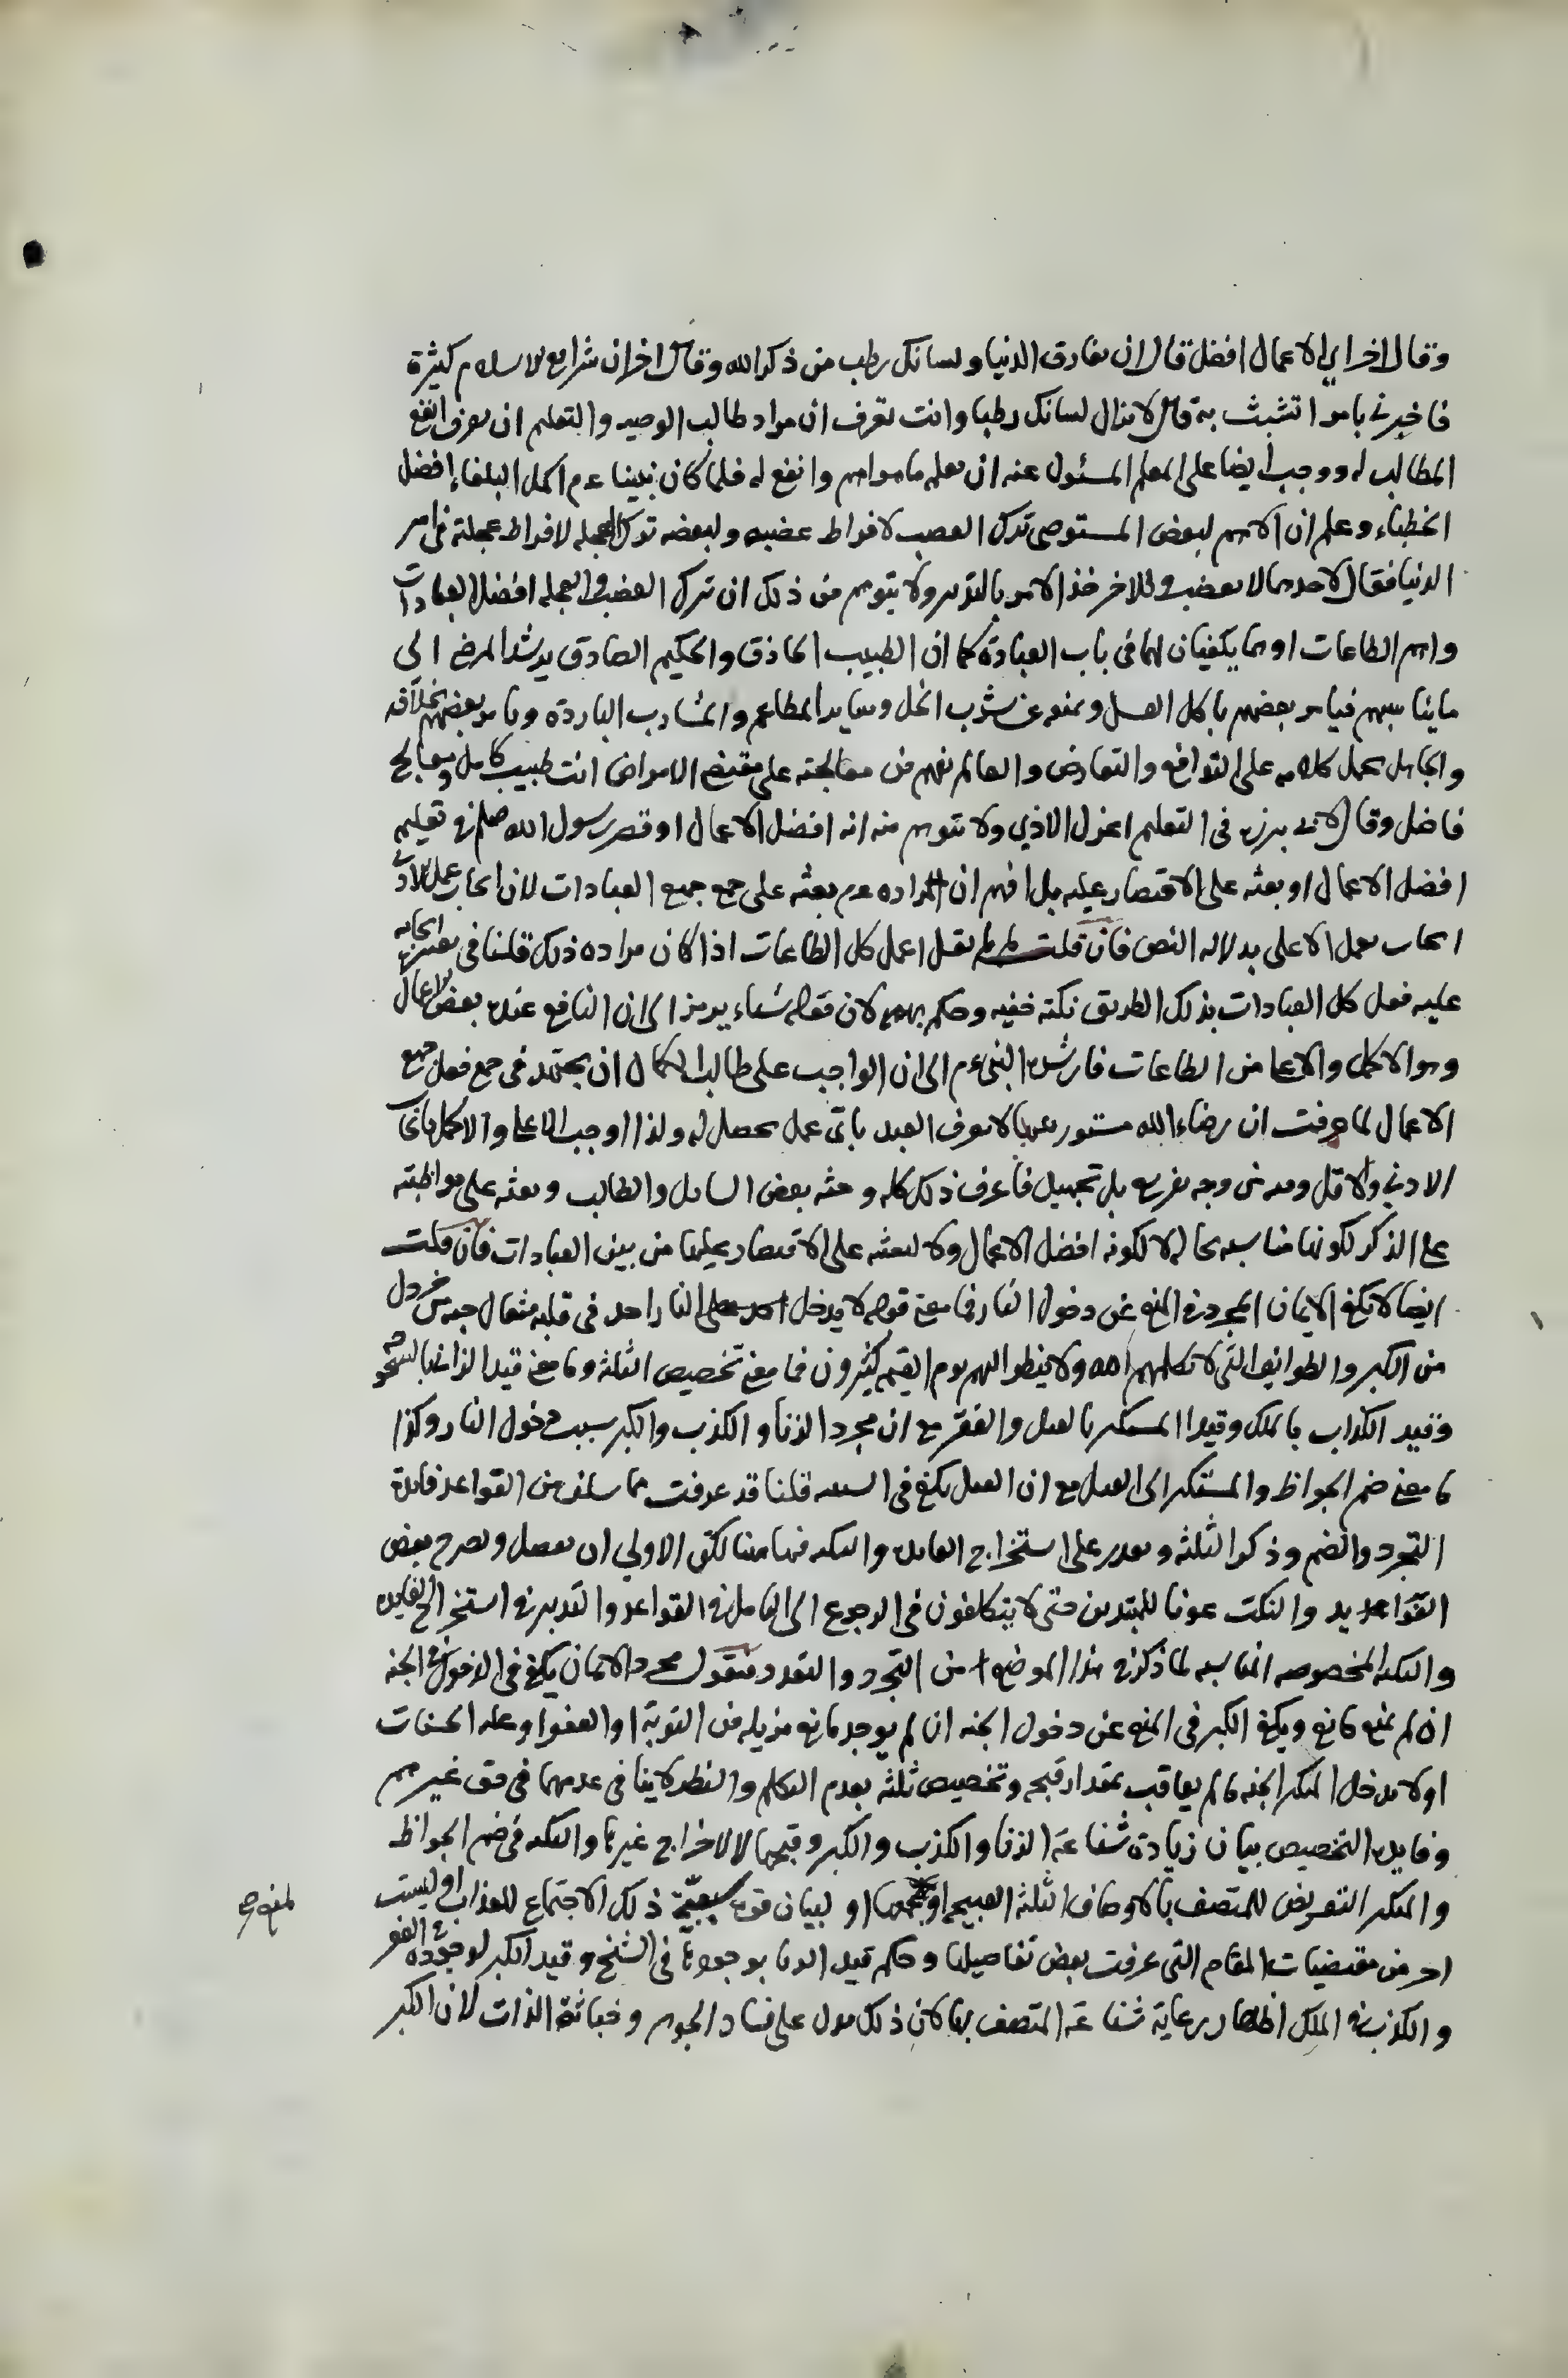 وقال اخر اي الاعمال افضل قال ان تفارق الدنيا ولسانك رطب من ذكر الله وقال اخر ان شرايع الاسلام كثيرة
فاخبرني بامر اتشبث به قال لا يزال لسانك رطبا وانت تعرف ان مراد طالب الوصيه والتعليم ان يعرف انفع
المطالب له ووجب ايضا على المعلم المسئول عنه ان يعلم ما هو اهم وانفع له فلما كان نبينا عم اكمل البلغاء افضل
الخطباء وعلم ان الاهم لبعض المستوصي ترك الغضب لافراط غضبه ولبعضه ترك العجله لافراط عجلته في امر
الدنيا فقال لاحدهما لا تغضب وللاخر خذ الامر بالتدبر ولا يتوهم من ذلك ان ترك الغضب والعجله افضل العبادات
واهم الطاعات او هما يكفيان لهما في باب العبادة كما ان الطبيب الحاذق والحكيم الصادق يرشد المرضى الى
ما يناسبهم فيامر بعضهم باكل العسل ويمنعه عن شرب الخل وساير المطاعم والمشارب الباردة ويامر بعضهم بخلافه
والجاهل يحمل كلامه على التدافع والتعارض والعالم يفهم من معالجته على مقتضى الامراض انت طبيب كامل ومعالج
فاضل وقال لابي برزه في التعليم اعزل الاذي ولا يتوهم منه انه افضل الاعمال او قصر رسول الله صلعم في تعليم
افضل الاعمال او بعثه على الاقتصار عليه بل افهم ان المراد عم بعثه على جمع جميع العبادات لان ايجاب عمل الادنى
ايجاب عمل الاعلى بدلاله النص فان قلت لم لم يقل اعمل كل الطاعات اذا كان مراده ذلك قلنا في ايجابه
عليه فعل كل العبادات بذلك الطريق نكته خفيه وحكم لان قوله يرمز الى ان النافع عنده بعض الاعمال
وهو الاكمل والاعلى من الطاعات فارشده النبي عم الى ان الواجب على طالب الكمال ان يجتهد في جمع فعل جميع
الاعمال لما عرفت ان رضاء الله مستور لا يعرف العبد باي عمل يحصل له ولذا اوجب الاعلى والاكمل بايجاب
الادنى والاقل وفيه من وجه تقريع بل تجهيل فاعرف ذلك كله وحثه بعض السايل والطالب وبعثه على مواظبته
على الذكر لكونها مناسبه بحاله لا لكونه افضل الاعمال ولا لبعثه على الاقتصار عليها من بين العبادات فان قلت
ايضا لا يكفي الايمان المجرد في المنع عن دخول النار فما معنى قوله لا يدخل النار احد في قلبه مثقال حبه من خردل
من الكبر والطوايف التي لا يكلمهم الله ولا ينظر اليهم يوم القيمه كثيرون فما معنى تخصيص الثلثة وما معنى قيد الزاني بالشيخوخه
وقيد الكذاب بالملك وقيد المستكبر بالعيل والفقر مع ان مجرد الزنا والكذب والكبر سبب دخول النار وكذا
ما معنى ضم الجواظ والمستكبر الى العتل مع ان العتل يكفي في السببيه قلنا قد عرفت مما سلف من القواعد فايدة
التجرد والضم وذكر الثلثه وتقدر على استخراج الفايده والنكته فيها هنا لكن الاولى ان نفصل ونصرح بعض
القواعد والنكت عونا للمبتدين حتى لا يتكلفون في الرجوع الى التامل في القواعد والتدبر في استخراج الفايده
والنكته المخصوصه المناسبه لما ذكر في هذا الموضع من التجرد والتعدد فنقول مجرد الايمان يكفي في الدخول في الجنه
ان لم يمنع مانع ويكفي الكبر في المنع عن دخول الجنه ان لم يوجد مانع مزيله من التوبة او العفو او غلبه الحسنات
او لا يدخل المتكبر الجنه ما لم يعاقب بمقدار قبحه وتخصيص ثلثه بعدم التكلم والنظر لا ينافي عدمهما في حق غيرهم
وفايده التخصيص بيان زيادة شناعة الزنا والكذب والكبر وقبحها لا لاخراج غيرها والنكته في ضم الجواظ
والمتكبر التعريض للمتصف بالاوصاف الثلثه القبيحه او لبيان قوة سببية ذلك الاجتماع للعذاب او ليست
لمفهوم
اخر من مقتضيات المقام التي عرفت بعض تفاصيلها وحكم قيد الزنا بوجودها في الشيخ وقيد الكبر لوجوده في الفقر
والكذب في الملك اظهار رعاية شناعة المتصف بها لان ذلك يدل على فساد الجوهر وخباثة الذات لان الكبر